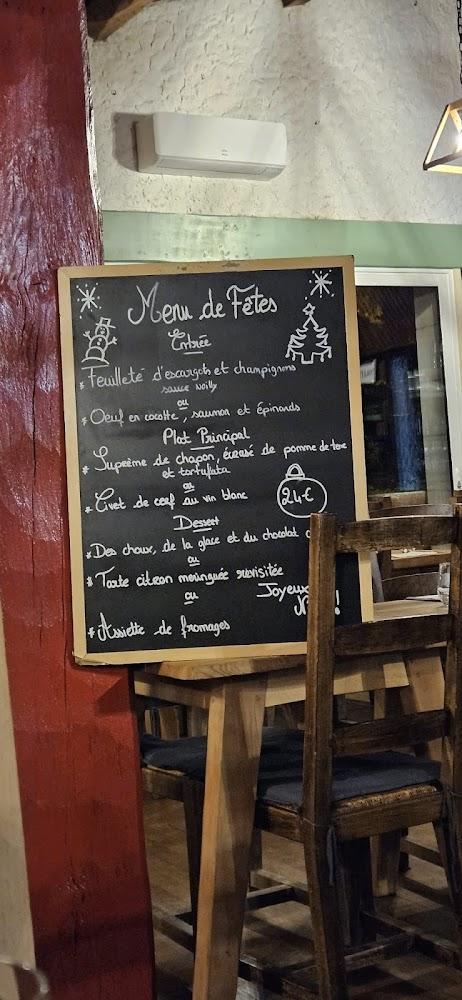 Menu de Fêtes
Entrée
* Feuilleté d'escargots et champignons
sauce noilly
ou
* Oeuf en cocotte, saumon et épinards
Plat Principal
* Suprème de chapon, écrasé de pomme de terre
et tartufata
ou
* Civet de cerf au vin blanc
24€
Dessert
* Des choux, de la glace et du chocolat
ou
* Tarte citron meringuée revisitée
ou
Joyeux
!
* Assiette de fromages